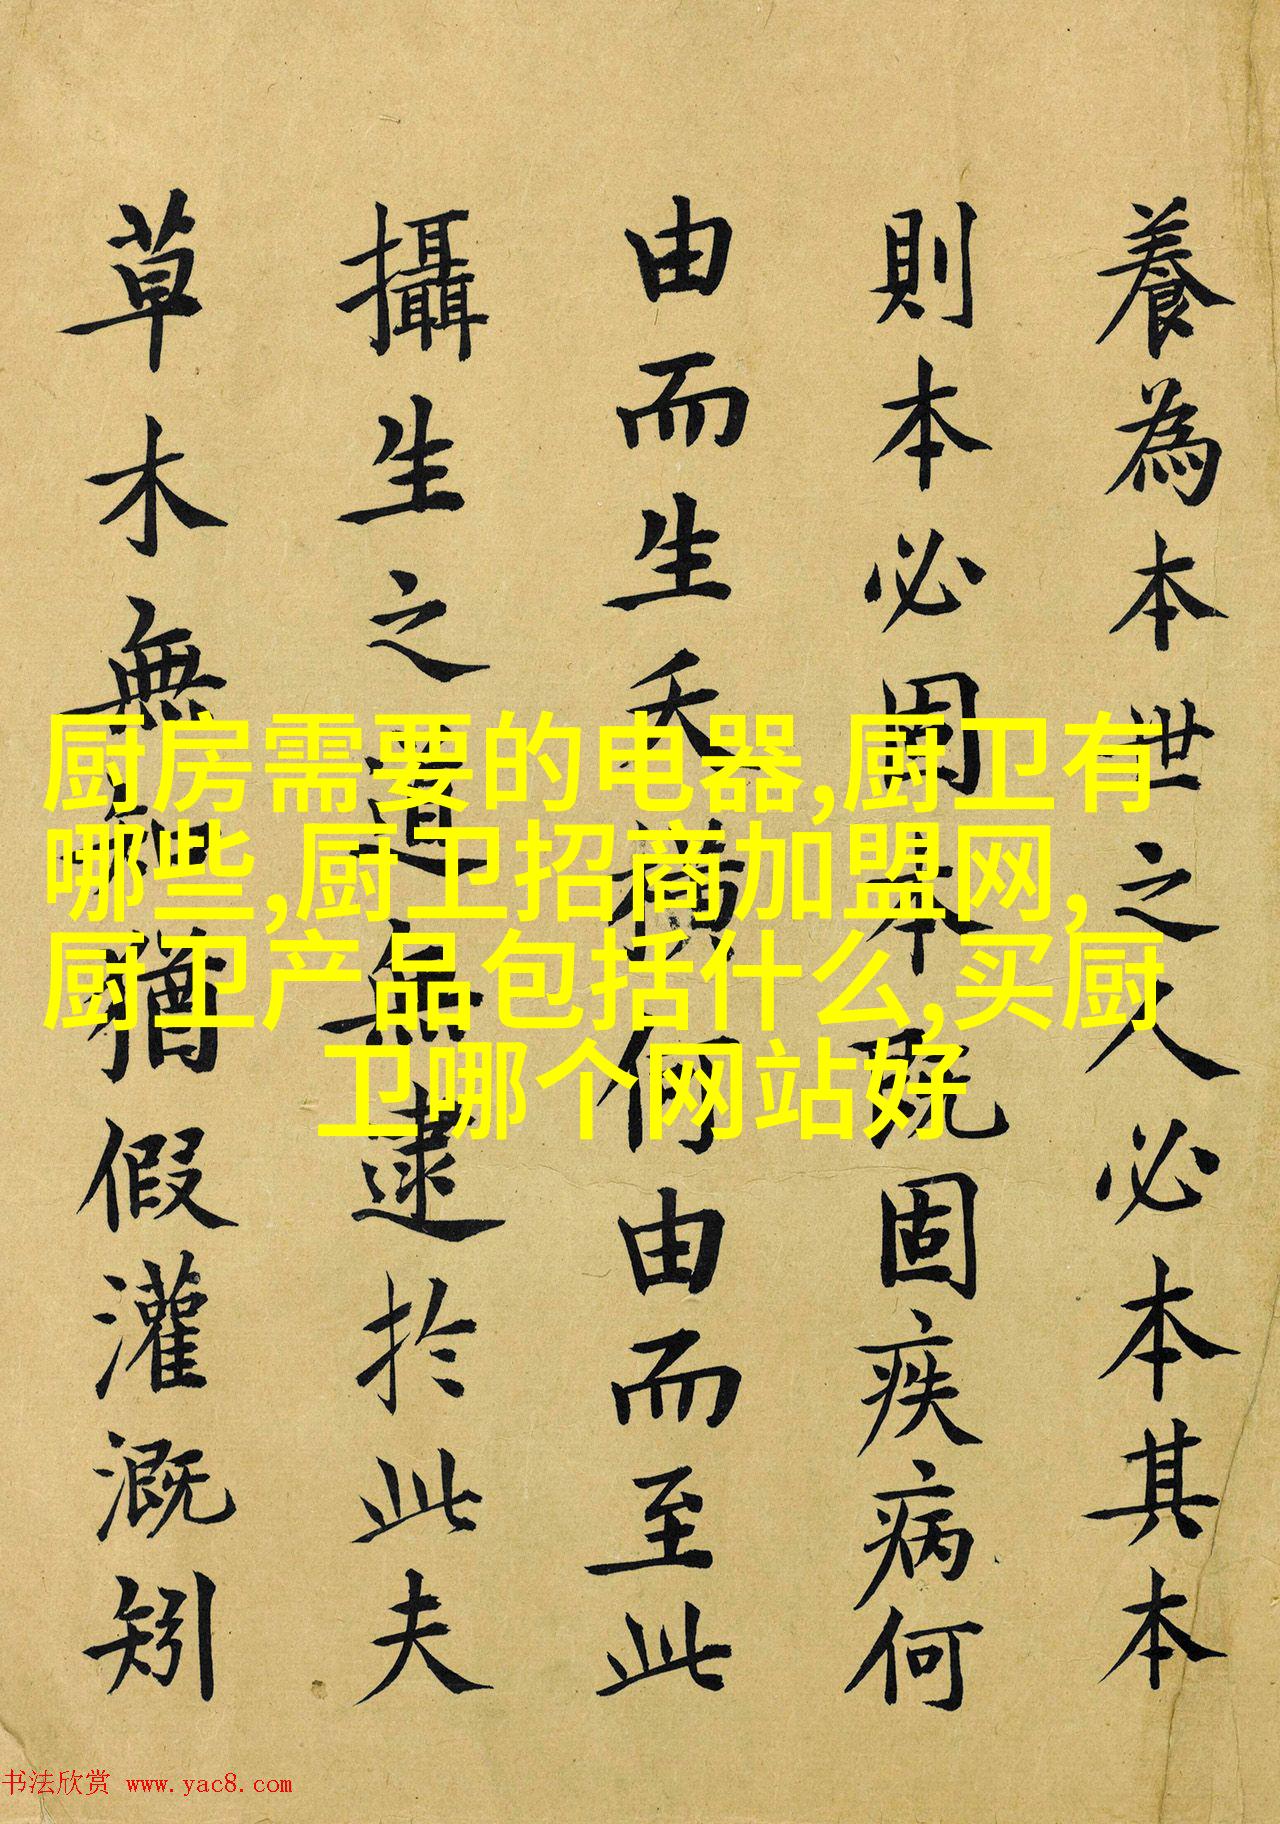 養為本世之人必本其本
則本必固本既固疾病何
由而生夭橫何由而至此
攝生之道無逮於此夫
草木無知猶假灌溉矧
厨房需要的电器,厨卫有
哪些,厨卫招商加盟网,
厨卫产品包括什么,买厨
卫哪个网站好
书法欣赏 www.yac8.com